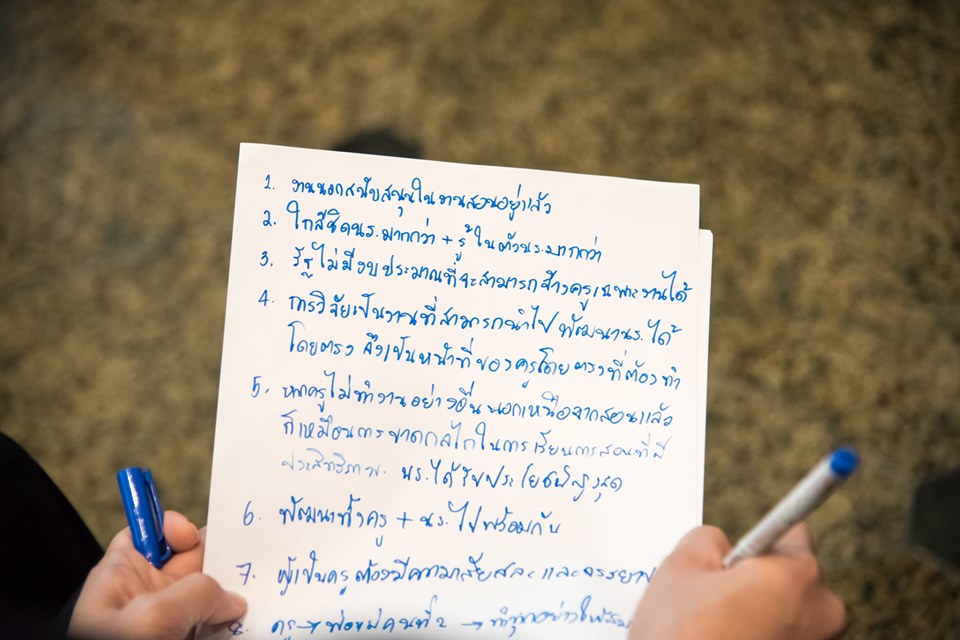 1. งานนอกสนับสนุนในงานสอนอยู่แล้ว
2. ใกล้ชิดนร.มากกว่า + รู้ในตัวนร.มากกว่า
3. รัฐไม่มีงบประมาณที่จะสามารถจ้างครูเฉพาะงานได้
4. การวิจัยเป็นงานที่สามารถนำไปพัฒนานร.ได้
โดยตรง จึงเป็นหน้าที่ของครูโดยตรงที่ต้องทำ
5. หากครูไม่ทำงานอย่างอื่นนอกเหนือจากสอนแล้ว
ก็เหมือนการขาดกลไกในการเรียนการสอนที่มี
ประสิทธิภาพ. นร.ได้รับประโยชน์สูงสุด
6. พัฒนาทั้งครู + นร.ไปพร้อมกับ
7. ผู้เป็นครูต้องมีความเสียสละ และจรรยาบ
8. ครู → พ่อแม่คนที่ 2 → ทำทุกอย่าง